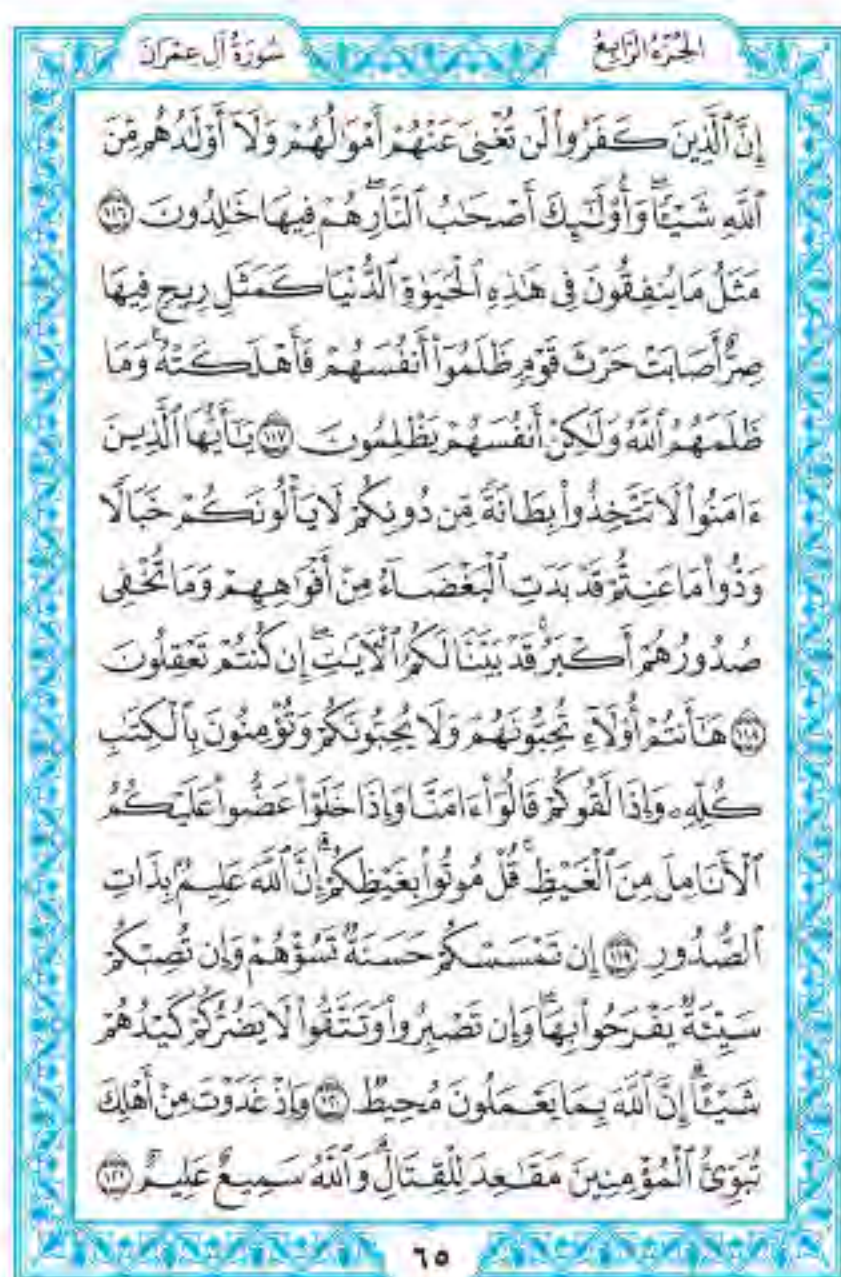 الجُزْءُ الرَّابِعُ
سُورَةُ آلِ عِمْرَانَ
إِنَّ ٱلَّذِينَ كَفَرُواْ لَن تُغْنِىَ عَنْهُمْ أَمْوَٰلُهُمْ وَلَآ أَوْلَٰدُهُم مِّنَ
ٱللَّهِ شَيْـًٔاۖ وَأُوْلَٰٓئِكَ أَصْحَٰبُ ٱلنَّارِۖ هُمْ فِيهَا خَٰلِدُونَ ١١٦
مَثَلُ مَا يُنفِقُونَ فِى هَٰذِهِ ٱلْحَيَوٰةِ ٱلدُّنْيَا كَمَثَلِ رِيحٍ فِيهَا
صِرٌّ أَصَابَتْ حَرْثَ قَوْمٍ ظَلَمُوٓاْ أَنفُسَهُمْ فَأَهْلَكَتْهُۚ وَمَا
ظَلَمَهُمُ ٱللَّهُ وَلَٰكِنْ أَنفُسَهُمْ يَظْلِمُونَ ١١٧ يَٰٓأَيُّهَا ٱلَّذِينَ
ءَامَنُواْ لَا تَتَّخِذُواْ بِطَانَةً مِّن دُونِكُمْ لَا يَأْلُونَكُمْ خَبَالًا
وَدُّواْ مَا عَنِتُّمْ قَدْ بَدَتِ ٱلْبَغْضَآءُ مِنْ أَفْوَٰهِهِمْ وَمَا تُخْفِى
صُدُورُهُمْ أَكْبَرُۚ قَدْ بَيَّنَّا لَكُمُ ٱلْءَايَٰتِۖ إِن كُنتُمْ تَعْقِلُونَ
١١٨ هَٰٓأَنتُمْ أُوْلَآءِ تُحِبُّونَهُمْ وَلَا يُحِبُّونَكُمْ وَتُؤْمِنُونَ بِٱلْكِتَٰبِ
كُلِّهِۦ وَإِذَا لَقُوكُمْ قَالُوٓاْ ءَامَنَّا وَإِذَا خَلَوْاْ عَضُّواْ عَلَيْكُمُ
ٱلْأَنَامِلَ مِنَ ٱلْغَيْظِۚ قُلْ مُوتُواْ بِغَيْظِكُمْۗ إِنَّ ٱللَّهَ عَلِيمٌۢ بِذَاتِ
ٱلصُّدُورِ ١١٩ إِن تَمْسَسْكُمْ حَسَنَةٌ تَسُؤْهُمْ وَإِن تُصِبْكُمْ
سَيِّئَةٌ يَفْرَحُواْ بِهَاۖ وَإِن تَصْبِرُواْ وَتَتَّقُواْ لَا يَضُرُّكُمْ كَيْدُهُمْ
شَيْـًٔاۗ إِنَّ ٱللَّهَ بِمَا يَعْمَلُونَ مُحِيطٌ ١٢٠ وَإِذْ غَدَوْتَ مِنْ أَهْلِكَ
تُبَوِّئُ ٱلْمُؤْمِنِينَ مَقَٰعِدَ لِلْقِتَالِۗ وَٱللَّهُ سَمِيعٌ عَلِيمٌ ١٢١
٦٥